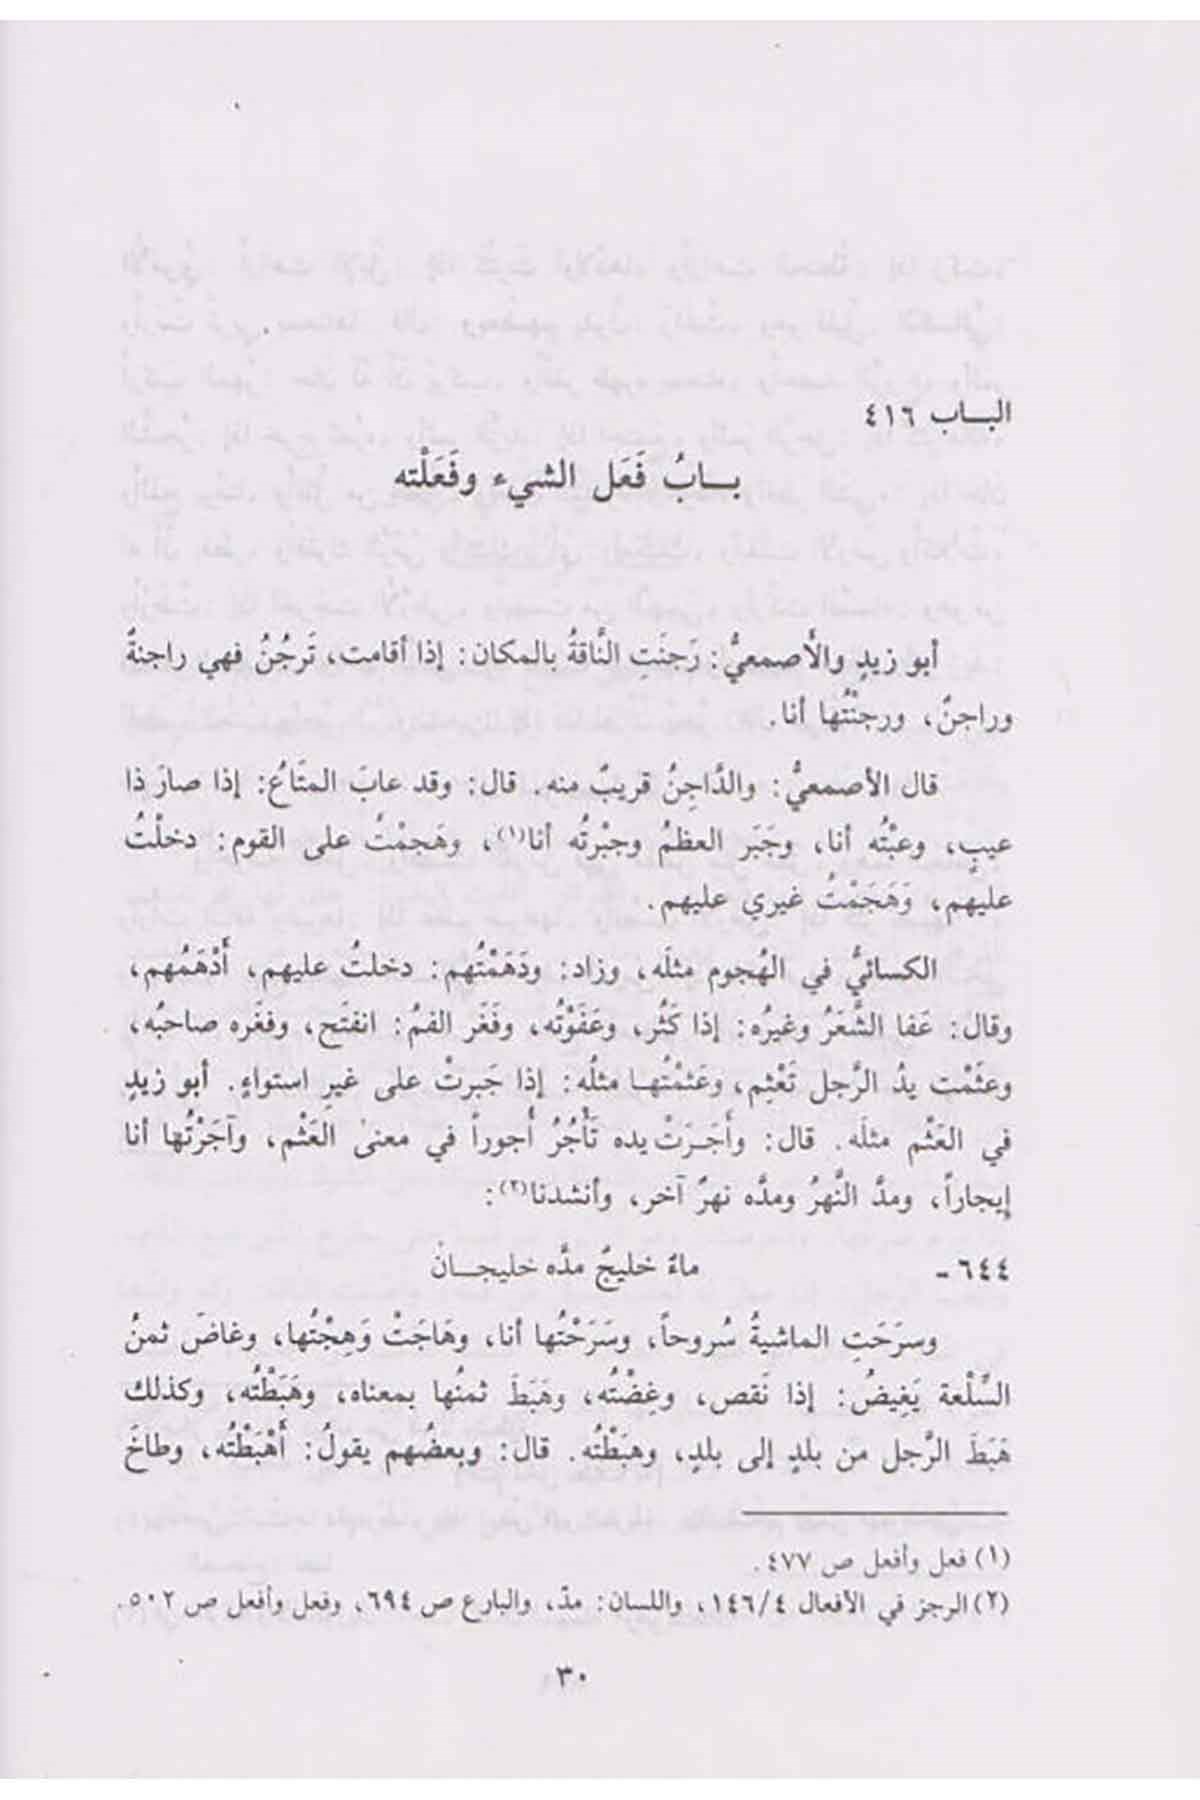 البـاب ٤١٦
بـابُ فَعَل الشيء وفَعَلْته
أبو زيدٍ والأصمعيُّ: رَجنَتِ النَّاقةُ بالمكان: إذا أقامت، تَرجُنُ فهي راجنةٌ
وراجنٌ، ورجنْتُها أنا.
قال الأصمعيُّ: والدَّاجِنُ قريبٌ منه. قال: وقد عابَ المتَاعُ: إذا صارَ ذا
عيبٍ، وعبْتُه أنا، وجَبَر العظمُ وجبْرتُه أنا(١)، وهَجمْتُ على القوم: دخلْتُ
عليهم، وَهَجَمْتُ غيري عليهم.
الكسائيُّ في الهُجوم مثلَه، وزاد: ودَهَمْتُهم: دخلتُ عليهم، أَدْهَمُهم،
وقال: عَفا الشَّعَرُ وغيرُه: إذا كَثُر، وعَفَوْتُه، وفَغَر الفمُ: انفتَح، وفغَره صاحبُه،
وعثَمْت يدُ الرَّجل تَعْثِم، وعَثمْتُهـا مثلُه: إذا جَبرتْ على غيرِ استواءٍ. أبو زيدٍ
في العَثْم مثلَه. قال: وأَجَـرَتْ يده تَأْجُرُ أُجوراً في معنىٰ العَثْم، وآجَرْتُها أنا
إِيجاراً، ومدَّ النَّهرُ ومدَّه نهرٌ آخر، وأنشدنا(٢):
٦٤٤ - ماءُ خليجٌ مدَّه خليجـانْ
وسرَحَتِ الماشيةُ سُروحاً، وسَرَحْتُها أنا، وهَاجَتْ وَهِجْتُها، وغاضَ ثمنُ
السِّلْعة يَغِيضُ: إذا نَقص، وغِضْتُه، وهَبَطَ ثمنُها بمعناه، وهَبَطْتُه، وكذلك
هَبَطَ الرَّجل من بلدٍ إلى بلدٍ، وهبَطْتُه. قال: وبعضُهم يقولُ: أَهْبَطْتُه، وطاخَ
(١) فعل وأفعل ص ٤٧٧.
(٢) الرجز في الأفعال ١٤٦/٤، واللسان: مدّ، والبارع ص ٦٩٤، وفعل وأفعل ص ٥٠٢.
٣٠